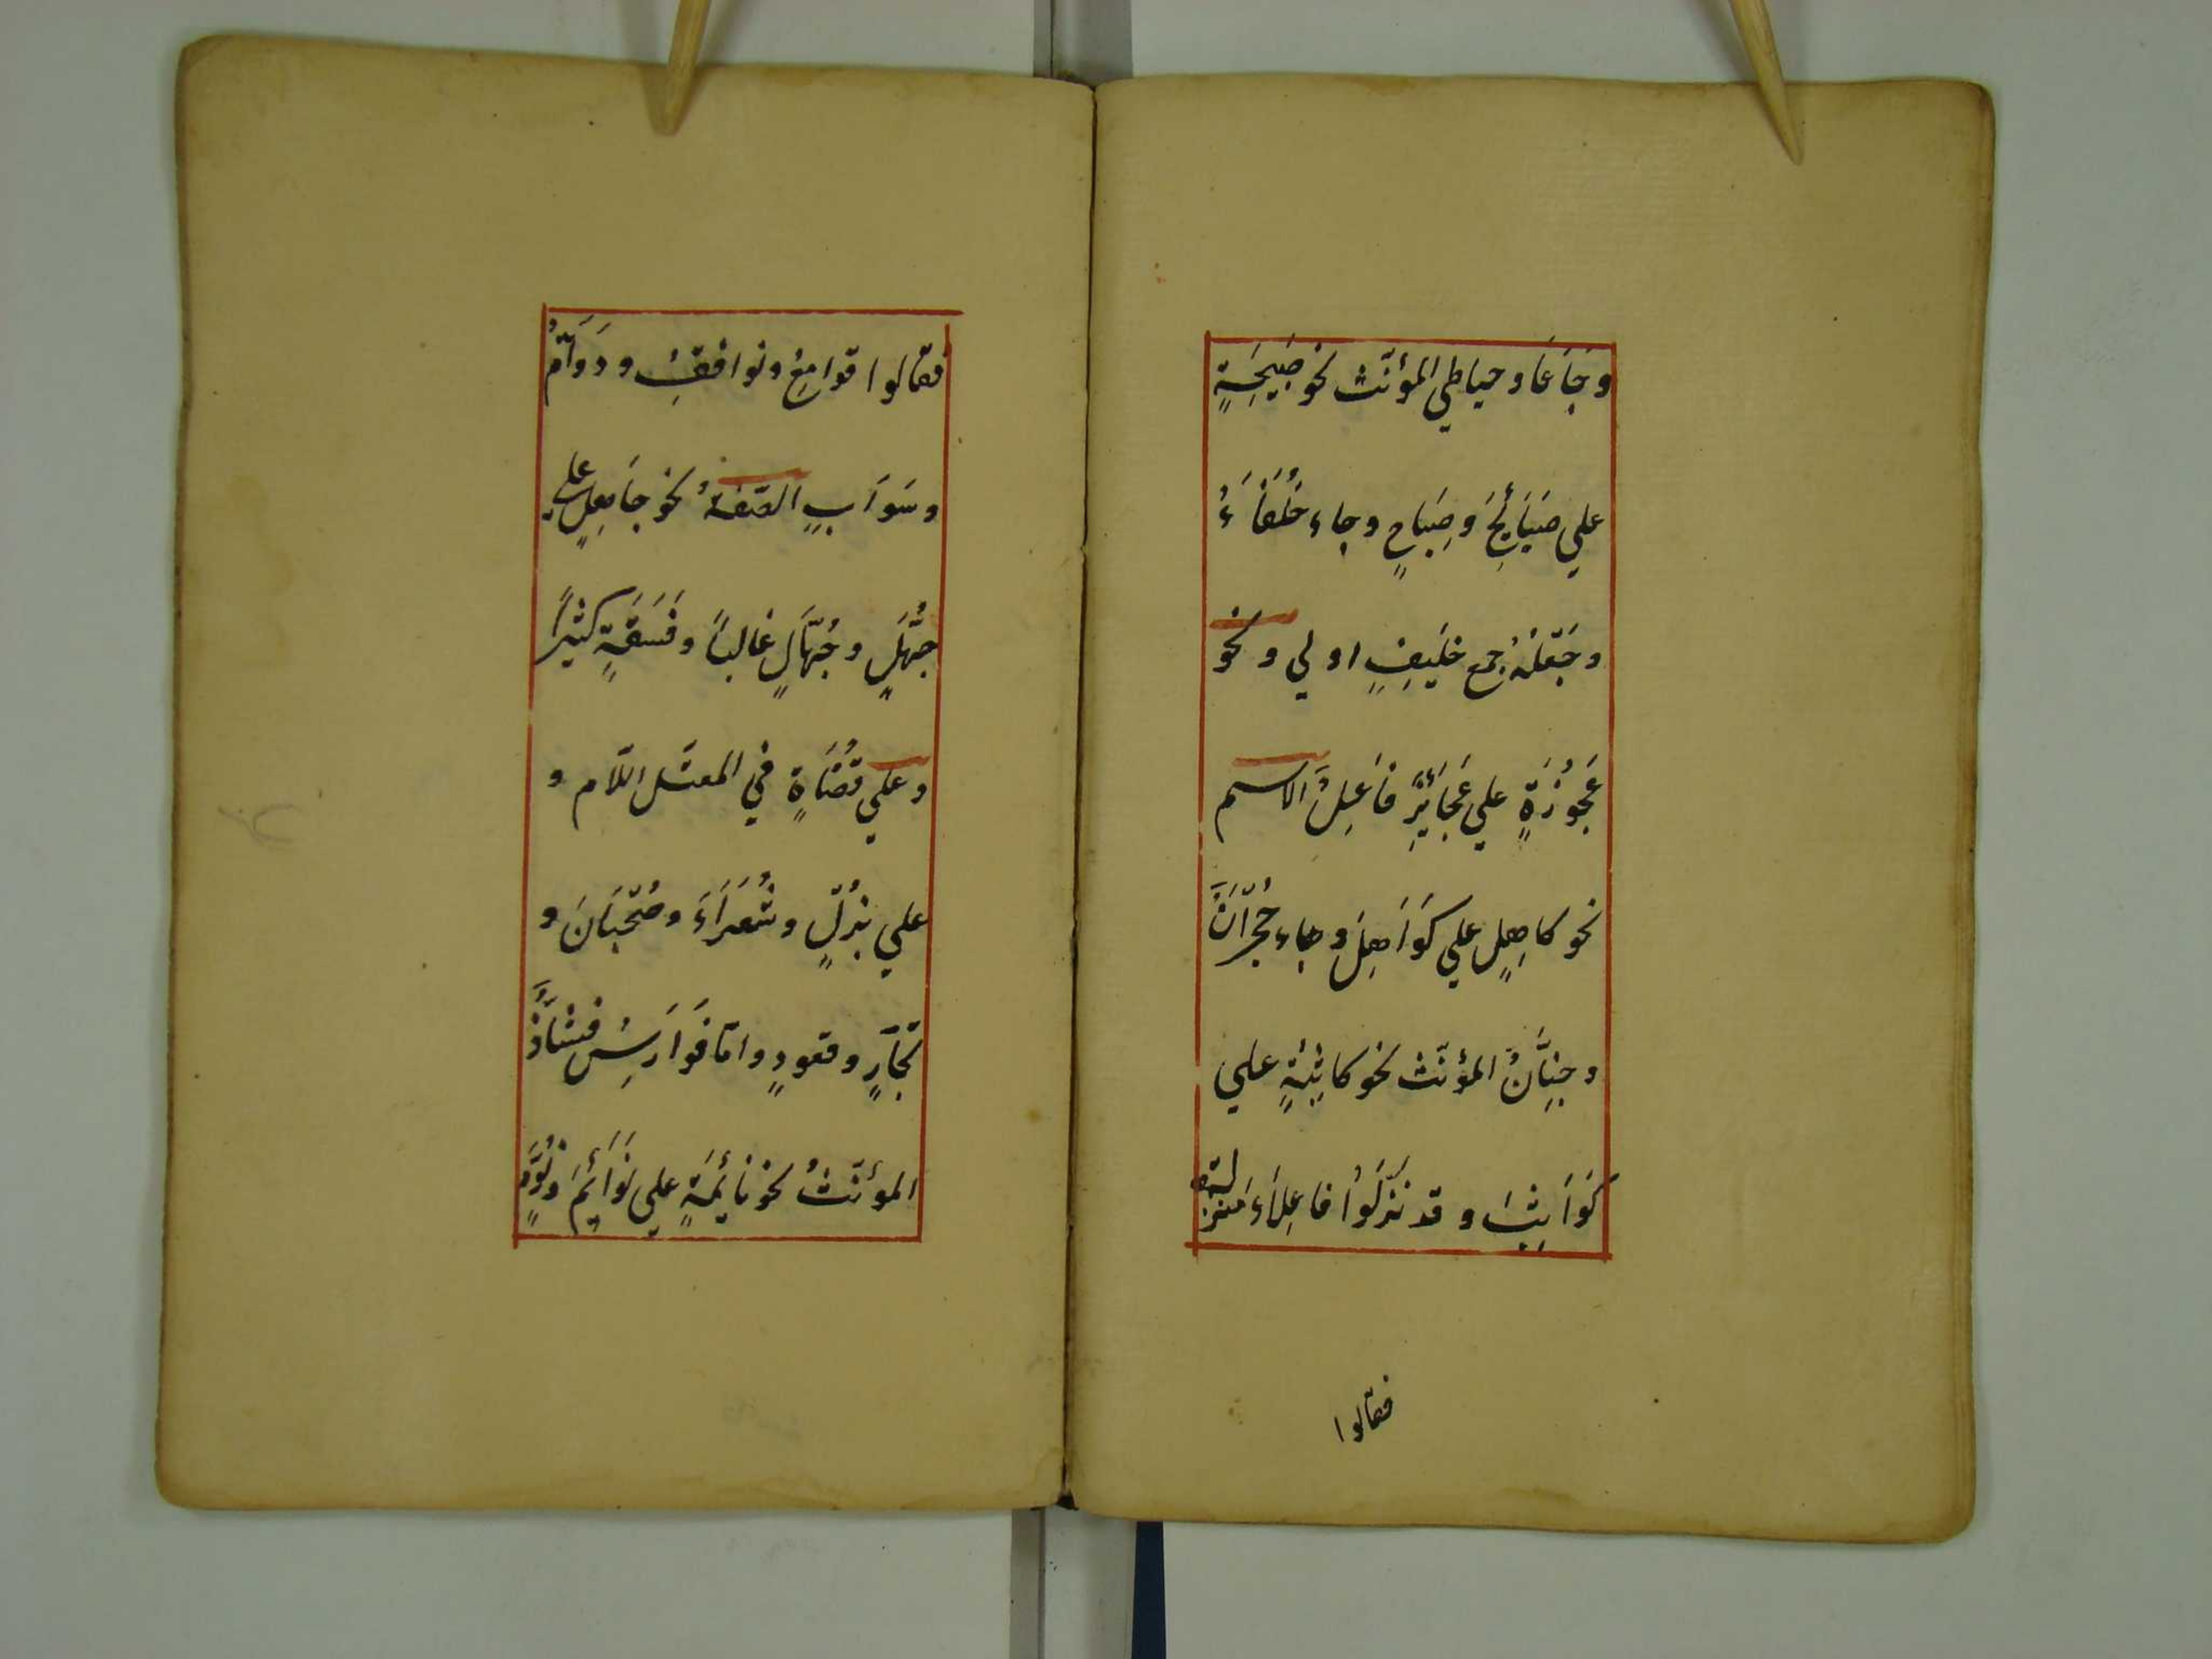 وَجَاعَا وحباطي المؤنّث نحو صَبِيحَةٍ
علي صَبَائِحَ وَصِبَاحٍ وجاء خُلَفَاءُ
وجَعْلُهُ جمع خليفٍ اولي ونحو
عَجُوزَةٍ علي عَجَائِزَ فَاعِلٌ الاسم
نحو كاهِلٍ علي كَوَاهِلَ وجاء حُجْرَانٌ
وجِنَّانٌ المؤنّث نحو كاثِبَةٍ علي
كَوَاثِبَ وقد نَزَّلُوا فاعِلاءَ منزلته
فقالوا
فقالوا قوامِعُ ونوافِقُ ودَوَامُّ
وسَوَابٍ الصّفةُ نحو جَاهِلٍ علي
جُهَّلٍ وجُهَّالٍ غالباً وفَسَقَةٍ كثيراً
وعلي قُضَاةٍ في المعتّل اللّام و
علي بُزُلٍ وشُعَرَاءَ وصُحْبَانَ و
تِجَارٍ وقعودٍ وامّا فَوَارِسُ فشَاذٌّ
المؤنّثُ نحو نائِمَةٍ علي نَوَائِمَ ونُوَّمٍ